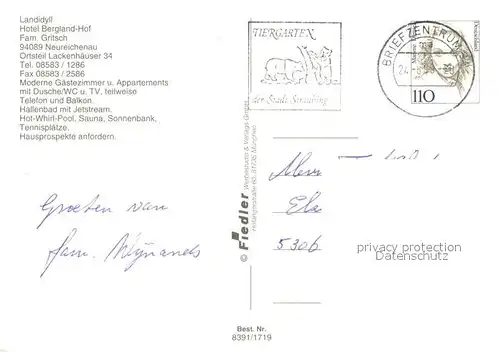 Landidyll
Hotel Bergland-Hof
Fam. Gritsch
94089 Neureichenau
Ortsteil Lackenhäuser 34
Tel. 08583 / 1286
Fax 08583 / 2586
Moderne Gästezimmer u. Appartements
mit Dusche/WC u. TV, teilweise
Telefon und Balkon.
Hallenbad mit Jetstream.
Hot-Whirl-Pool, Sauna, Sonnenbank,
Tennisplätze.
Hausprospekte anfordern.
Groeten van
fam. Wijnands
© Fiedler Werbestudio & Verlags-GmbH
TIERGARTEN
der Stadt Straubing
BRIEFZENTRUM
Deutschland
110
5306
privacy protection
Datenschutz
Best. Nr.
8391/1719